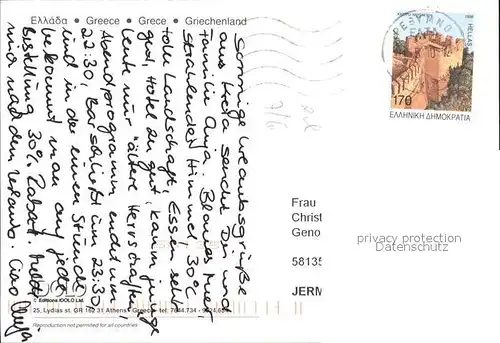 Ελλάδα • Greece • Grece • Griechenland
Sonnige Urlaubsgrüße
aus Kreta sendet Dir und
Familie Anja. Blaues Meer,
strahlender Himmel 30°C
tolle Landschaft, Essen sehr
gut, Hotel zu gut, kaum junge
Leute nur "ältere Herrschaften".
Abendprogramm endet um
22:30, Bar schließt um 23:30,
und in der einen Stunde
bekommt man auf jede
Bestellung 30% Rabatt. Melde
mich nach dem Urlaub. Ciao Anja
© Editions IDOLO Ltd.
25, Lydias st. GR 162 31 Athens
Greece tel: 7644.734
Reproduction not permited for all countries
1998
HELLAS
170
ΕΛΛΗΝΙΚΗ ΔΗΜΟΚΡΑΤΙΑ
Frau
Christ
Geno
58135
JERM
privacy protection
Datenschutz